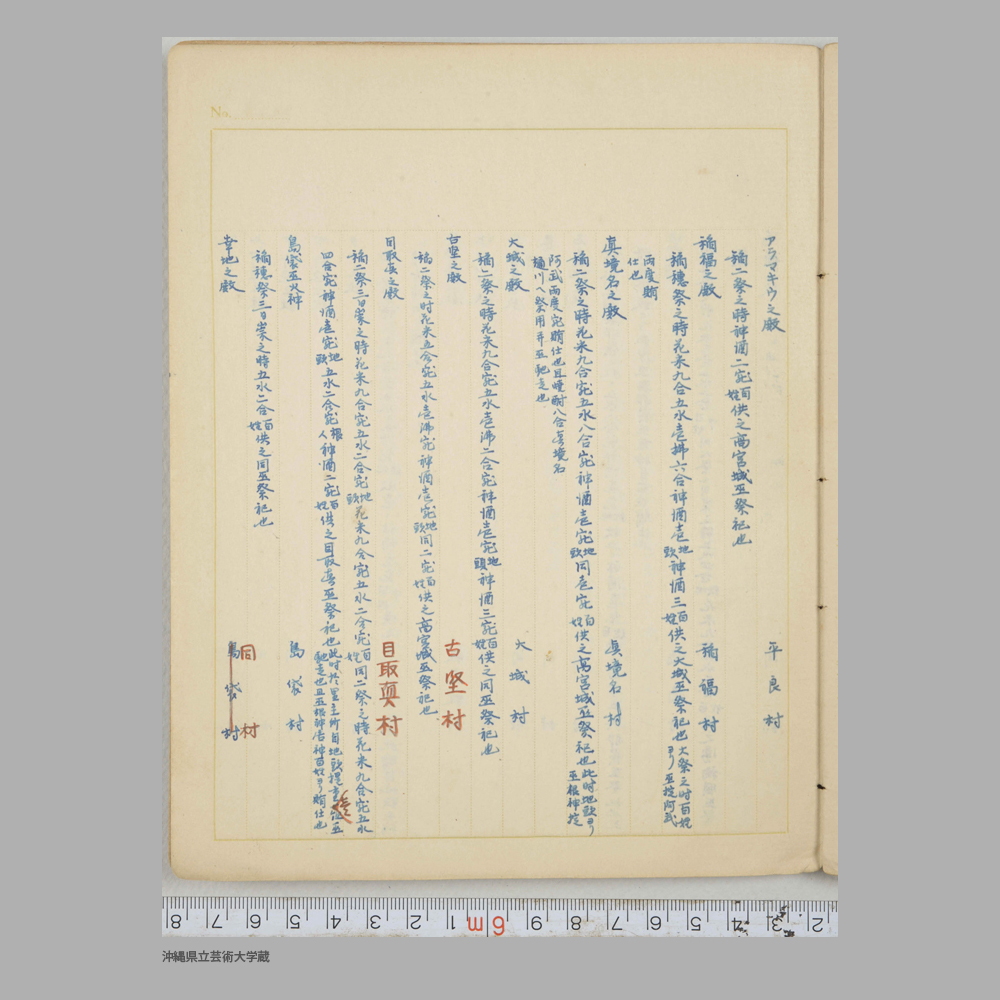 No.
アラマキウ之殿 平良村
稲二祭之時神酒二宛百姓供之高宮城巫祭祀也
稲福之殿 稲福村
稲穂祭之時花米九合五水壱沸六合神酒壱地頭神酒三百姓供之大城巫祭祀也大祭之時百姓ヨリ巫掟阿武
両度賄仕也
真境名之殿 真境名村
稲二祭之時花米九合宛五水八合宛神酒壱宛地頭同壱宛百姓供之高宮城巫祭祀也此時地頭ヨリ巫根神掟
阿武両度宛賄仕也且噇酎八合真境名樋川ヘ祭用并巫馳走也
大城之殿 大城村
稲二祭之時花米九合宛五水壱沸二合宛神酒壱宛地頭神酒三宛百姓供之同巫祭祀也
古堅之殿 古堅村
稲二祭之時花米五合宛五水壱沸宛神酒壱宛地頭同二宛百姓供之高宮城巫祭祀也
目取真之殿 目取真村
稲二祭三日崇之時花米九合宛五水二合宛地頭花米九合宛五水二合宛百姓同二祭之時花米九合宛五水
四合宛神酒壱宛地頭五水二合宛根人神酒二宛百姓供之目取真巫祭祀也此時於里主所自地頭
島袋巫火神 島袋村
稲穂祭三日崇之時五水二合百姓供之同巫祭祀也
幸地之殿 島袋村 同村
8 7 6 5 4 3 2 1 6m 9 8 7 6 5 4 3 2
沖縄県立芸術大学蔵